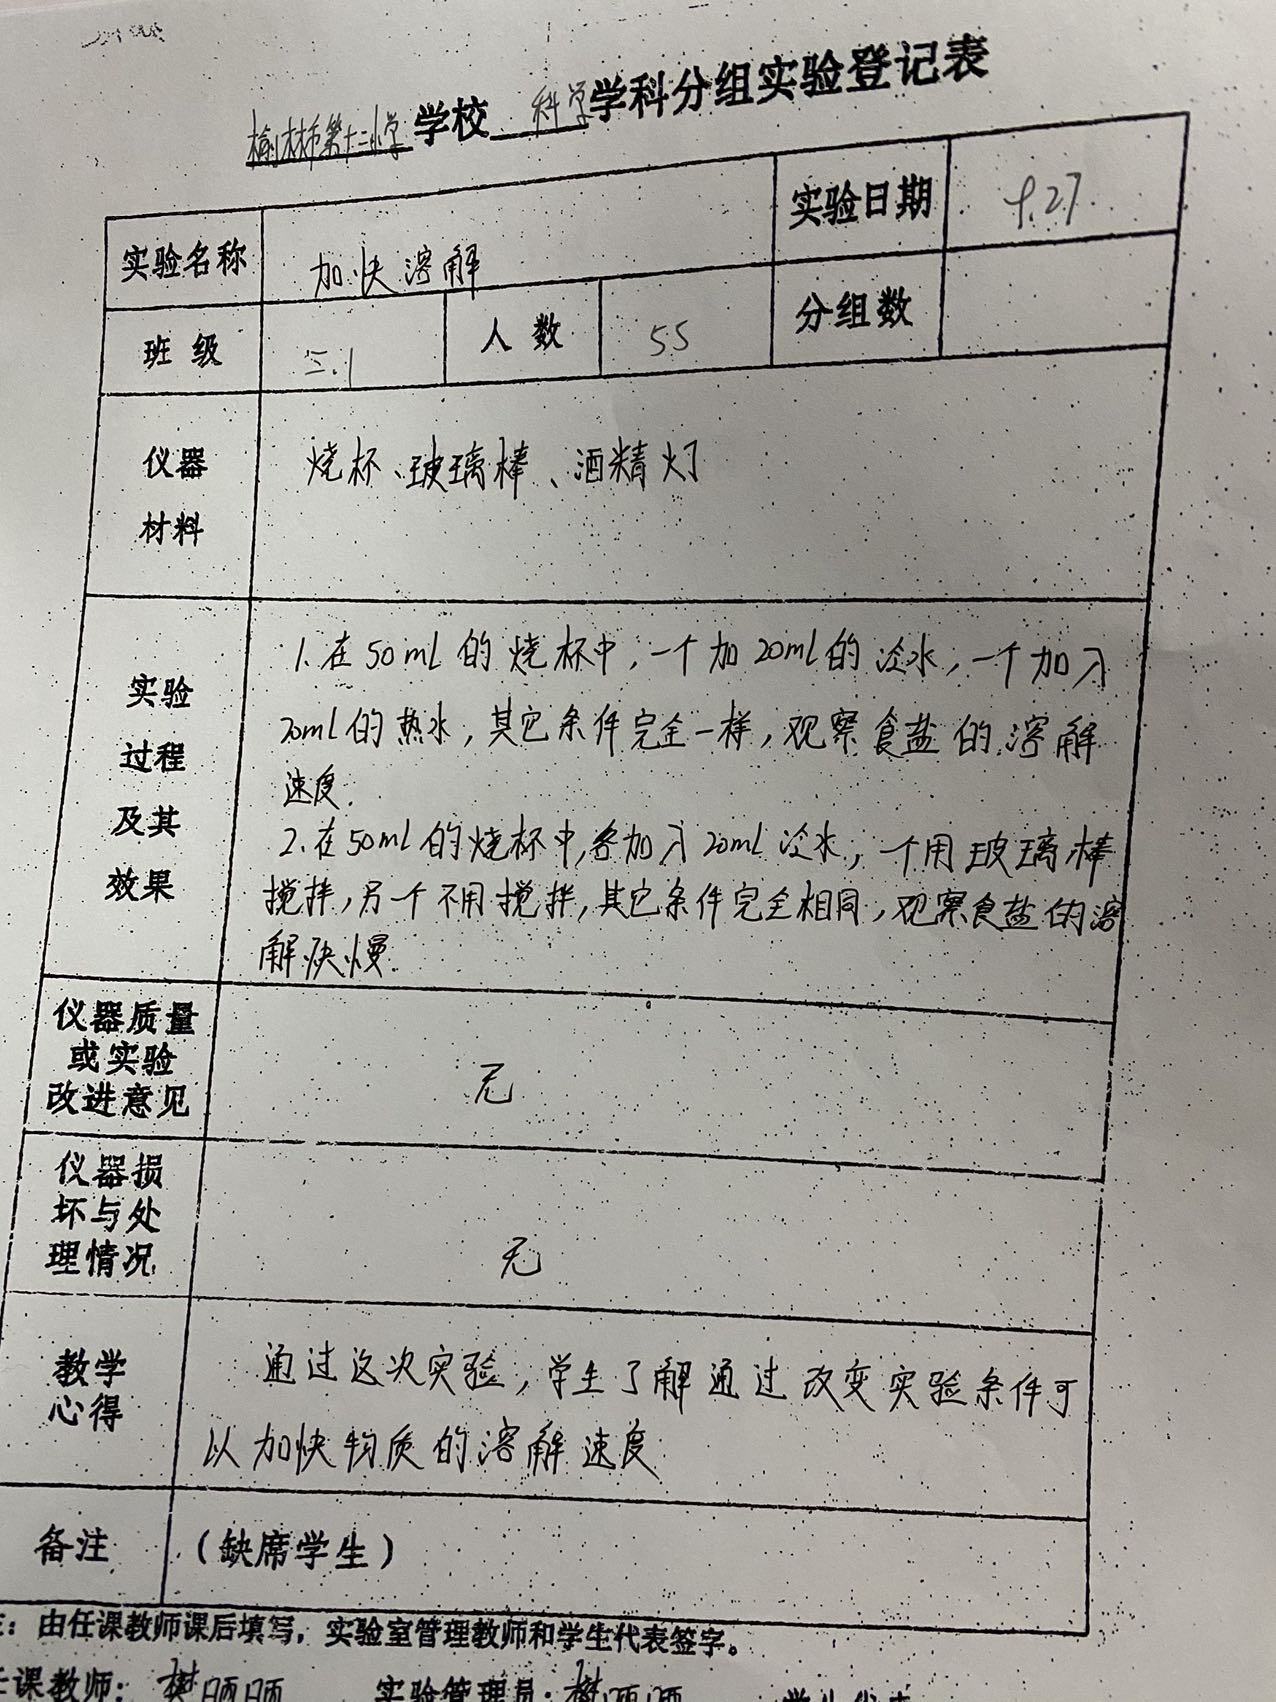 榆林市第十二小学学校 科学学科分组实验登记表
实验名称 加快溶解 实验日期 9.27.
班级 三.1 人数 55 分组数
仪器
材料
烧杯、玻璃棒、酒精灯
实验
过程
及其
效果
1.在50ml的烧杯中,一个加20ml的冷水,一个加入
20ml的热水,其它条件完全一样,观察食盐的溶解
速度.
2.在50ml的烧杯中,各加入20ml冷水,一个用玻璃棒
搅拌,另一个不用搅拌,其它条件完全相同,观察食盐的溶
解快慢.
仪器质量
或实验
改进意见
无
仪器损
坏与处
理情况
无
教学
心得
通过这次实验,学生了解通过改变实验条件可
以加快物质的溶解速度
备注 (缺席学生)
:由任课教师课后填写,实验室管理教师和学生代表签字。
课教师: 实验管理员: